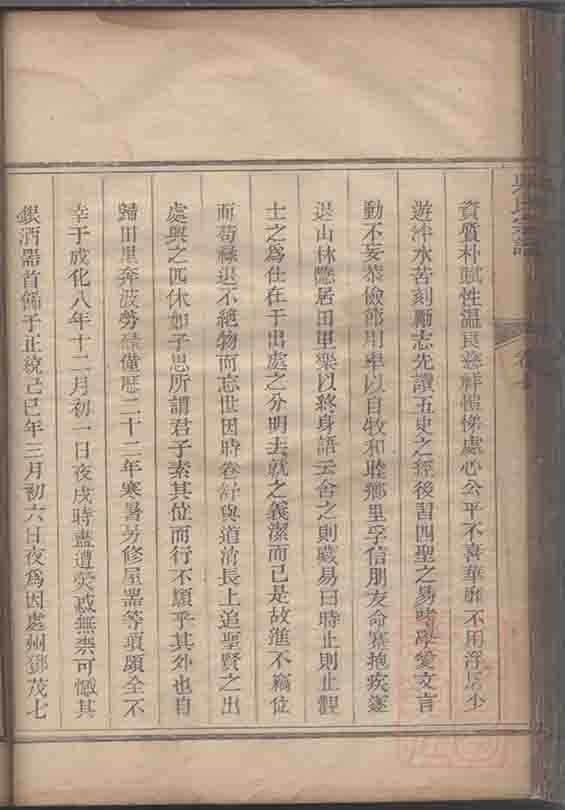 資質朴賦性溫良慈祥愷悌處心公平不喜華靡不用浮屠少
遊泮水苦刻勵志先讀五史之經後習四聖之易嗜學愛文言
動不妄恭儉節用卑以自牧和睦鄉里孚信朋友命蹇抱疾遂
退山林隱居田里樂以終身語云舍之則藏易曰時止則止觀
士之爲仕在于出處之分明去就之義潔而已是故進不竊位
而苟祿退不絶物而忘世因時卷舒與道消長上追聖賢之出
處與之匹休如子思所謂君子素其位而行不願乎其外也自
歸田里奔波勞碌僅歷二十二年寒暑芳修屋器等項頗全不
幸于成化八年十二月初一日夜戌時盡遭熒惑無禦可憾其
銀酒器首飾于正統己巳年三月初六日夜爲因處州鄧茂七
吳氏宗譜
卷